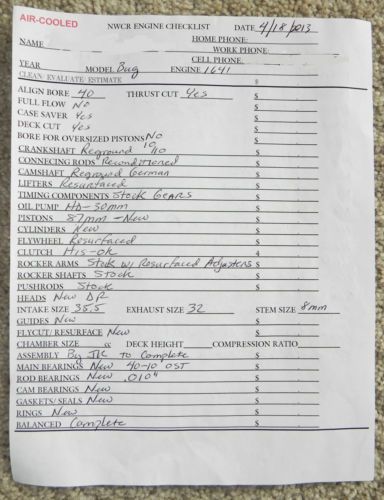 AIR-COOLED
NWCR ENGINE CHECKLIST DATE 4/18/2013
HOME PHONE:
NAME WORK PHONE:
CELL PHONE:
YEAR MODEL Bug ENGINE 1641
CLEAN/EVALUATE ESTIMATE $
ALIGN BORE 40 THRUST CUT Yes $
FULL FLOW No $
CASE SAVER Yes $
DECK CUT Yes $
BORE FOR OVERSIZED PISTONS No $
CRANKSHAFT Reground 10/10 $
CONNECING RODS Reconditioned $
CAMSHAFT Reground German $
LIFTERS Resurfaced $
TIMING COMPONENTS Stock Gears $
OIL PUMP HD-30mm $
PISTONS 87mm - New $
CYLINDERS New $
FLYWHEEL Resurfaced $
CLUTCH His-ok
ROCKER ARMS Stock w/ Resurfaced Adjusters $
ROCKER SHAFTS Stock $
PUSHRODS Stock $
HEADS New DP
INTAKE SIZE 35.5 EXHAUST SIZE 32 STEM SIZE 8mm
GUIDES New $
FLYCUT/ RESURFACE New $
CHAMBER SIZE cc DECK HEIGHT COMPRESSION RATIO
ASSEMBLY By to Complete $
MAIN BEARINGS New 40-10 OST $
ROD BEARINGS New .010" $
CAM BEARINGS New $
GASKETS/ SEALS New $
RINGS New $
BALANCED Complete $